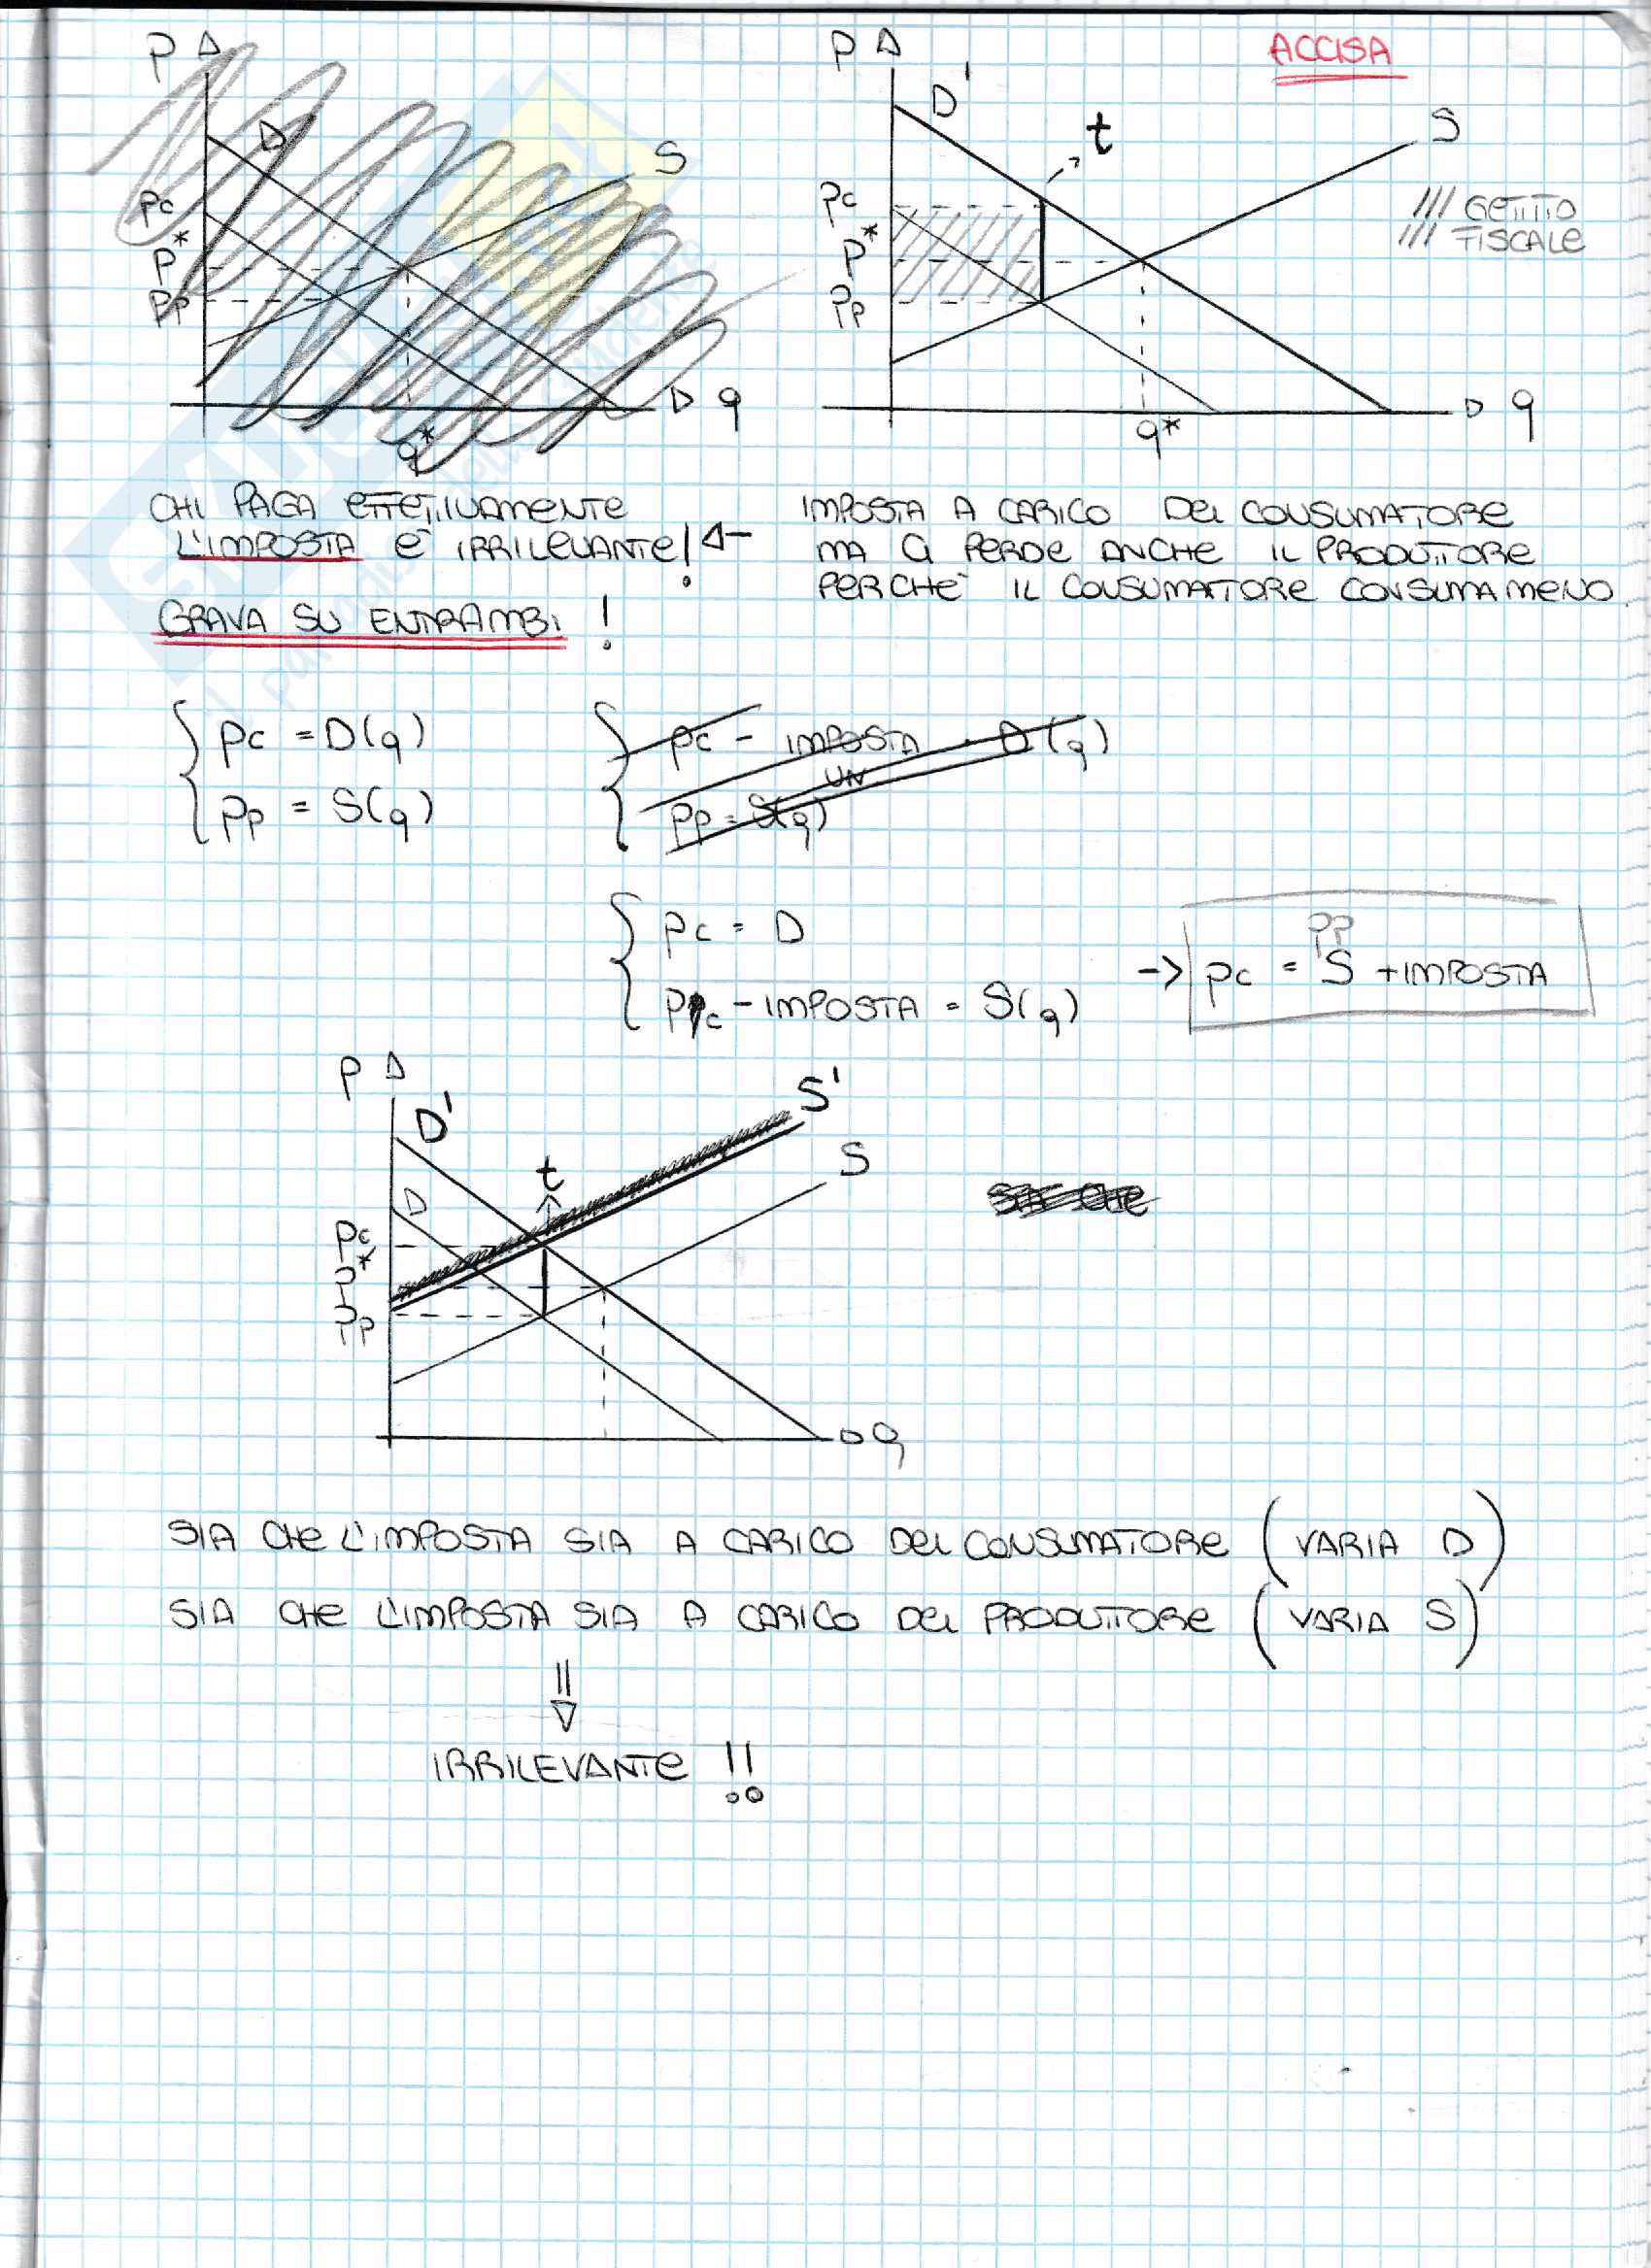 ACCISA
P
D
S
Pc
P*
Pp
q*
q
P
D'
t
S
Pc
P*
Pp
q*
q
/// GETTITO
/// FISCALE
CHI PAGA EFFETTIVAMENTE
L'IMPOSTA È IRRILEVANTE!
GRAVA SU ENTRAMBI !
IMPOSTA A CARICO DEL CONSUMATORE
MA CI PERDE ANCHE IL PRODUTTORE
PERCHÈ IL CONSUMATORE CONSUMA MENO.
Pc = D(q)
Pp = S(q)
Pc - IMPOSTA = D(q)
UN
Pp = S(q)
Pc = D
Pc - IMPOSTA = S(q)
-> Pc = S + IMPOSTA
Pp
P
D'
D
t
S'
S
Pc
P*
Pp
q
SIA CHE L'IMPOSTA SIA A CARICO DEL CONSUMATORE (VARIA D)
SIA CHE L'IMPOSTA SIA A CARICO DEL PRODUTTORE (VARIA S)
IRRILEVANTE !!